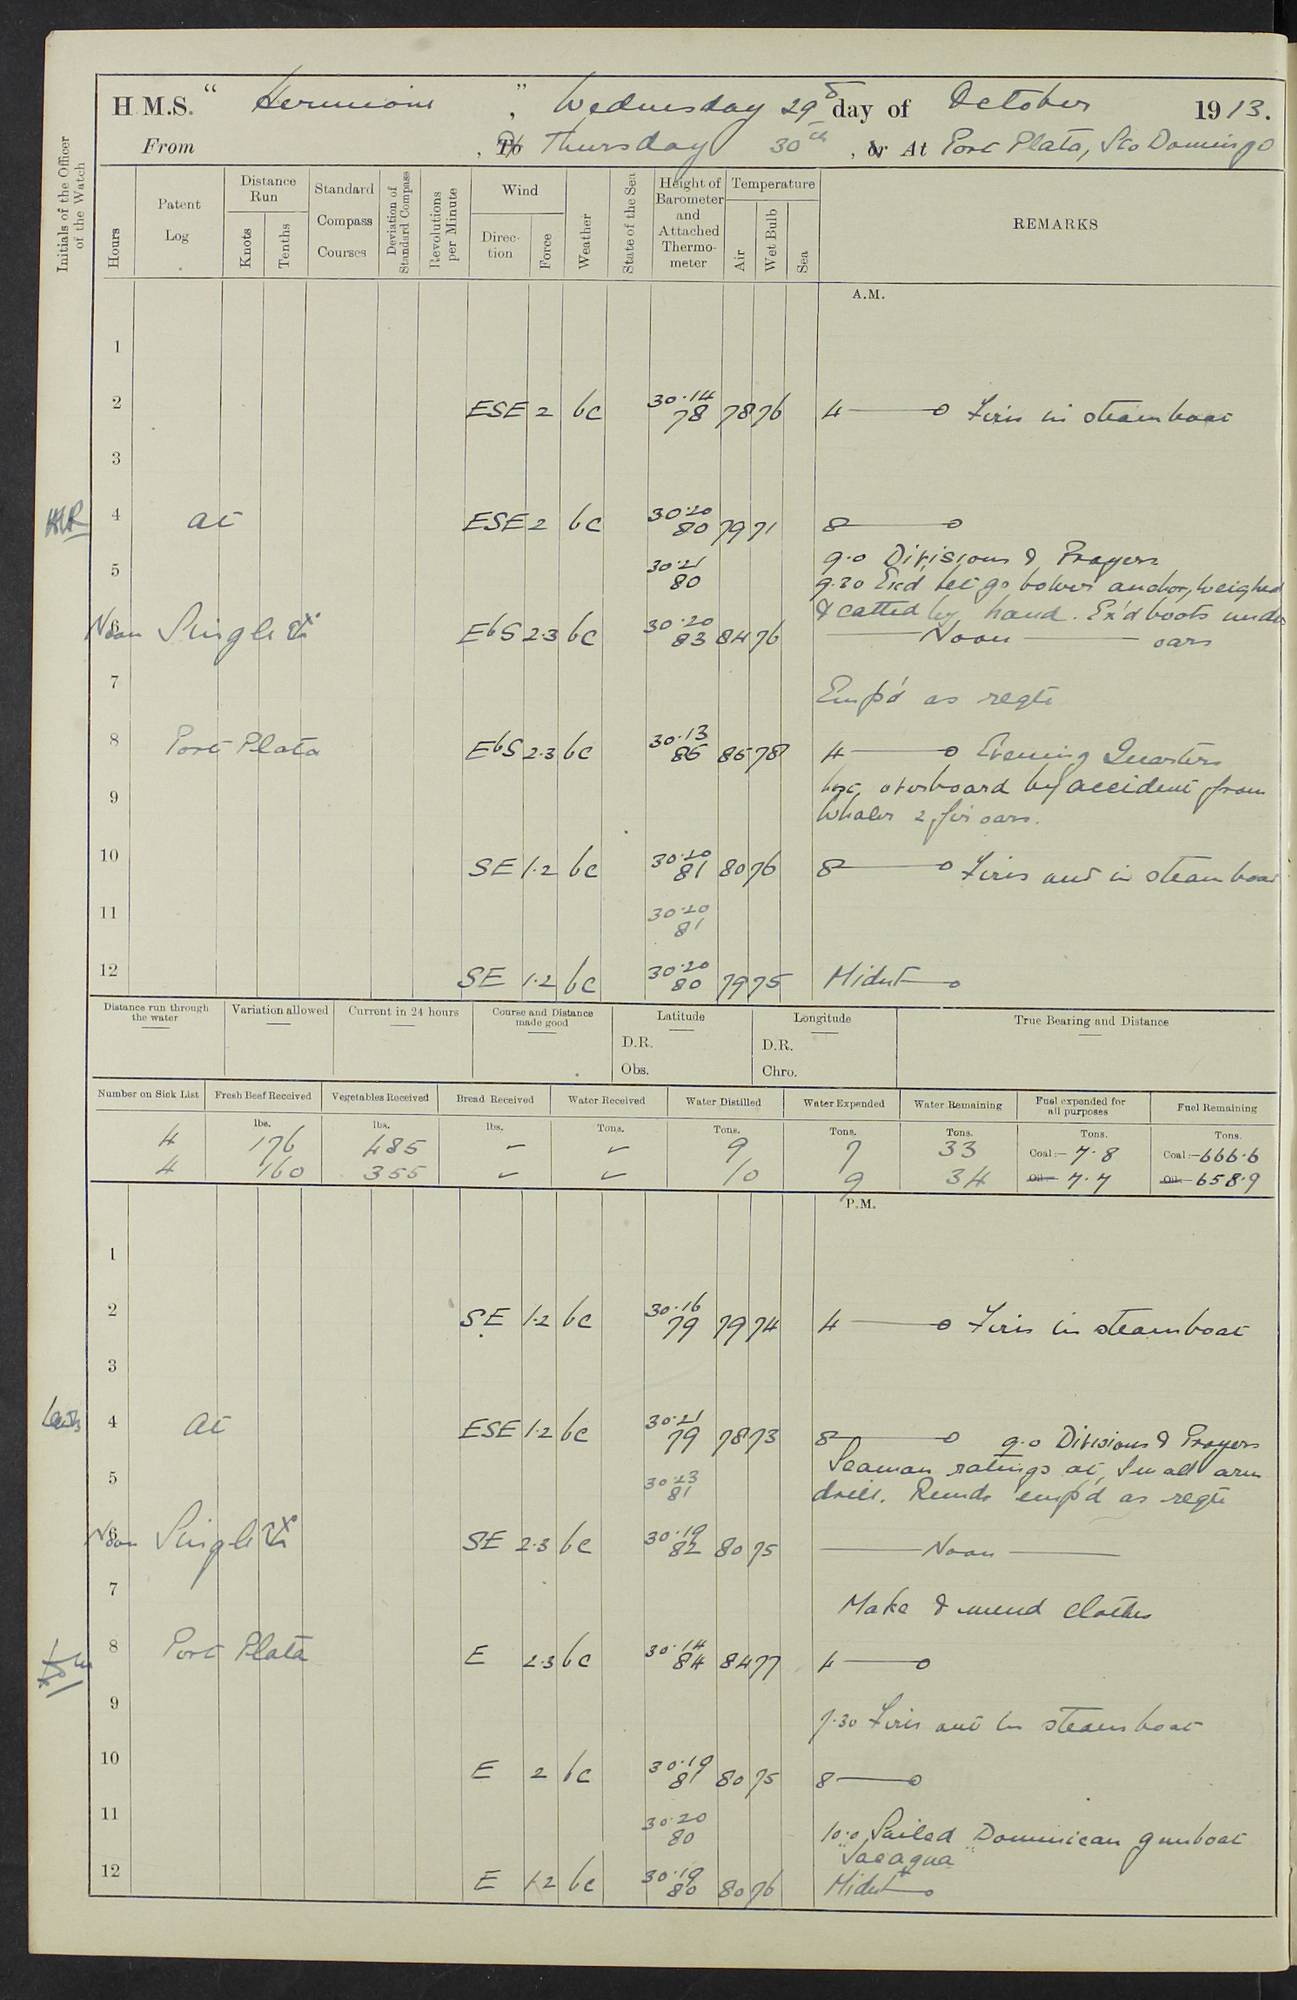 H.M.S. "Hermione", Wednesday 29th day of October 1913.
From , To Thursday 30th , or At Port Plata, Sto Domingo
Initials of the Officer of the Watch
Hours
Patent Log
Distance Run
Knots
Tenths
Standard Compass Courses
Deviation of Standard Compass
Revolutions per Minute
Wind
Direction
Force
Weather
State of the Sea
Height of Barometer and Attached Thermometer
Temperature
Air
Wet Bulb
Sea
REMARKS
A.M.
1
2 ESE 2 bc 30.14 78 78 76 4 Fires in steamboat
3
4 at ESE 2 bc 30.20 80 79 71 8
9.0 Divisions & Prayers
5 30.21 80 9.20 Ex'd let go bower anchor, weighed
& catted by hand. Ex'd boats under
6 Noon Single Noon oars
EbS 2.3 bc 30.20 83 84 76
7 Emp'd as reqte
8 Port Plata EbS 2.3 bc 30.13 86 86 78 4 Evening Quarters
9 lost overboard by accident from
Whaler 2 fir oars.
10 SE 1.2 bc 30.20 81 80 76 8 Fires out in steamboat
11 30.20 81
12 SE 1.2 bc 30.20 80 79 75 Midnt
Distance run through the water
Variation allowed
Current in 24 hours
Course and Distance made good
Latitude
D.R.
Obs.
Longitude
D.R.
Chro.
True Bearing and Distance
Number on Sick List
Fresh Beef Received
Vegetables Received
Bread Received
Water Received
Water Distilled
Water Expended
Water Remaining
Fuel expended for all purposes
Fuel Remaining
lbs. lbs. lbs. Tons. Tons. Tons. Tons. Tons. Tons.
4 176 485 – – 9 7 33 Coal:– 7.8 Coal:– 666.6
4 160 355 – – 10 9 34 Oil:– 7.7 Oil:– 658.9
P.M.
1
2 SE 1.2 bc 30.16 79 79 74 4 Fires in steamboat
3
4 at ESE 1.2 bc 30.21 79 78 73 8 9.0 Divisions & Prayers
Seaman ratings at Small arm
5 30.23 81 drill. Remdr emp'd as reqte
6 Noon Single SE 2.3 bc 30.19 82 80 75 Noon
7 Make & mend clothes
8 Port Plata E 2.3 bc 30.14 84 84 77 4
9 7.30 Fires out in steamboat
10 E 2 bc 30.19 81 80 75 8
11 30.20 80 10.0 Sailed Dominican gunboat
"Jacagua"
12 E 1.2 bc 30.19 80 80 76 Midnt